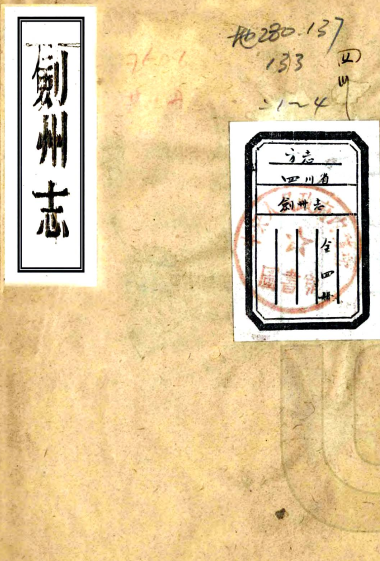 劍州志
地280.137
133
-1~4
四川
方志
四川省
劍州志
全四冊